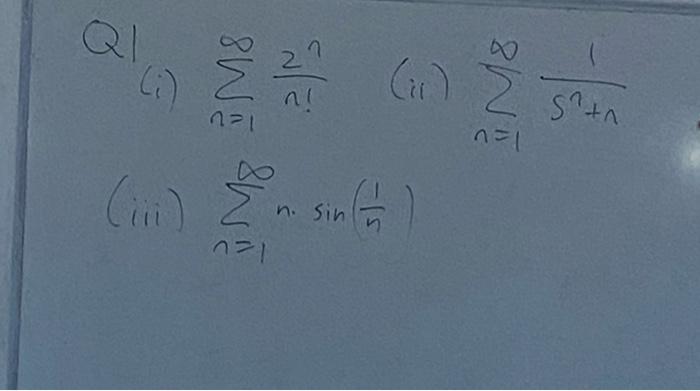 Q1
(i) ∑_{n=1}^{∞} 2^n/n! (ii) ∑_{n=1}^{∞} 1/(5^n+n)
(iii) ∑_{n=1}^{∞} n. sin(1/n)